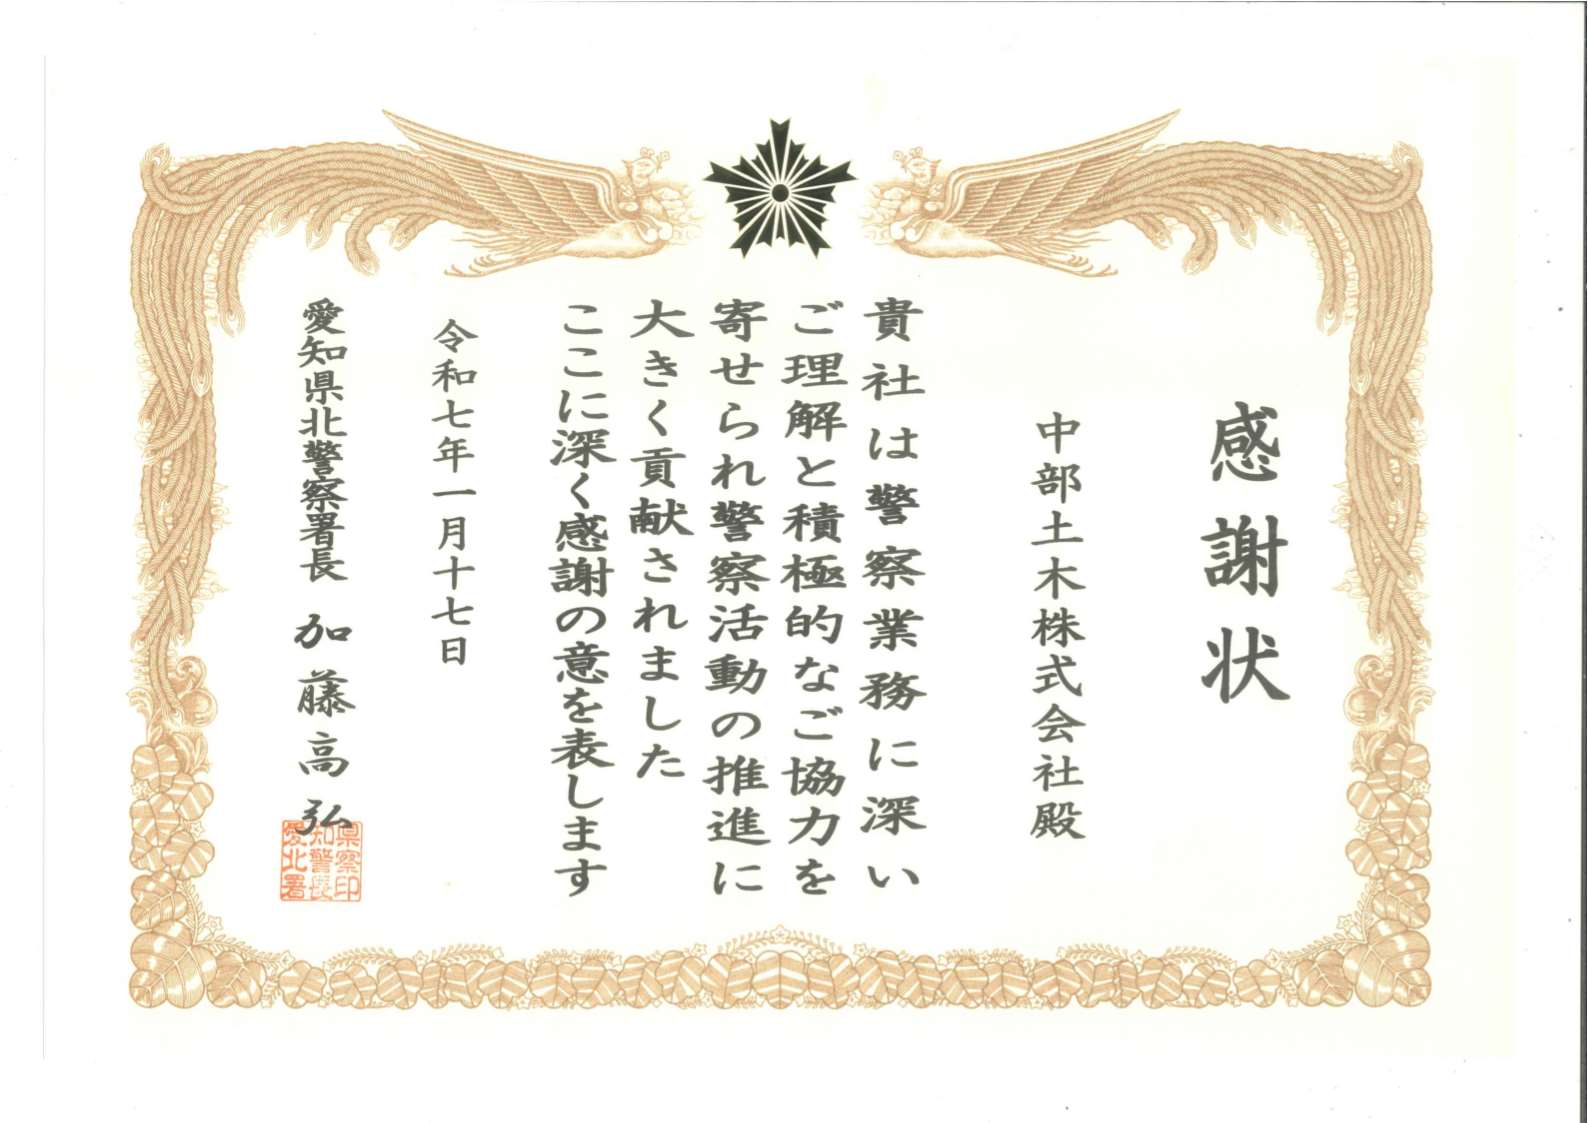 感謝状
中部土木株式会社殿
貴社は警察業務に深い
ご理解と積極的なご協力を
寄せられ警察活動の推進に
大きく貢献されました
ここに深く感謝の意を表します
令和七年一月十七日
愛知県北警察署長 加藤高弘
県察印
知警長
愛北署